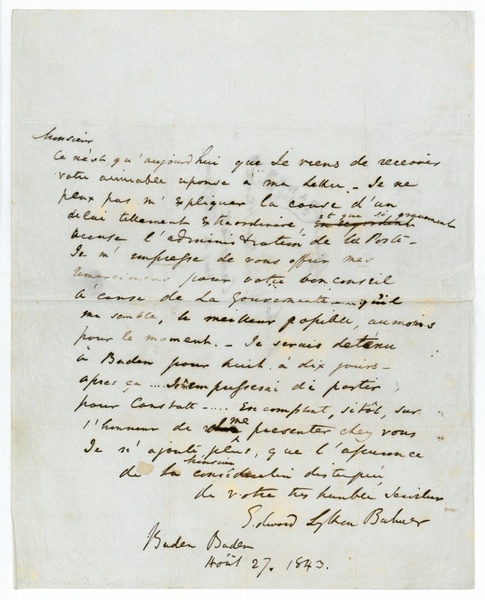 Monsieur
Ce n'est qu'aujourd'hui que Je viens de recevoir
votre aimable reponse à ma lettre. - Je ne
peux pas m'expliquer la cause d'un
delai tellement extraordinaire et que si gravement
accuse l'administration de la Poste -
Je m'empresse de vous offrir mes
remerciemens pour votre bon conseil
à cause de La Gouvernante - qu'il
me semble, le meilleur possible, au moins
pour le moment. - Je serais detenu
à Baden pour huit à dix jours -
apres ça .... m'empresserai de partir
pour Constatt - .... En comptant, sitôt, sur
l'honneur de me presenter chez vous
Je n'ajoute plus, que l'assurance
de la consideration distinguée
Monsieur
de votre tres humble Serviteur
Edward Lytton Bulwer
Baden Baden
Août 27. 1843.